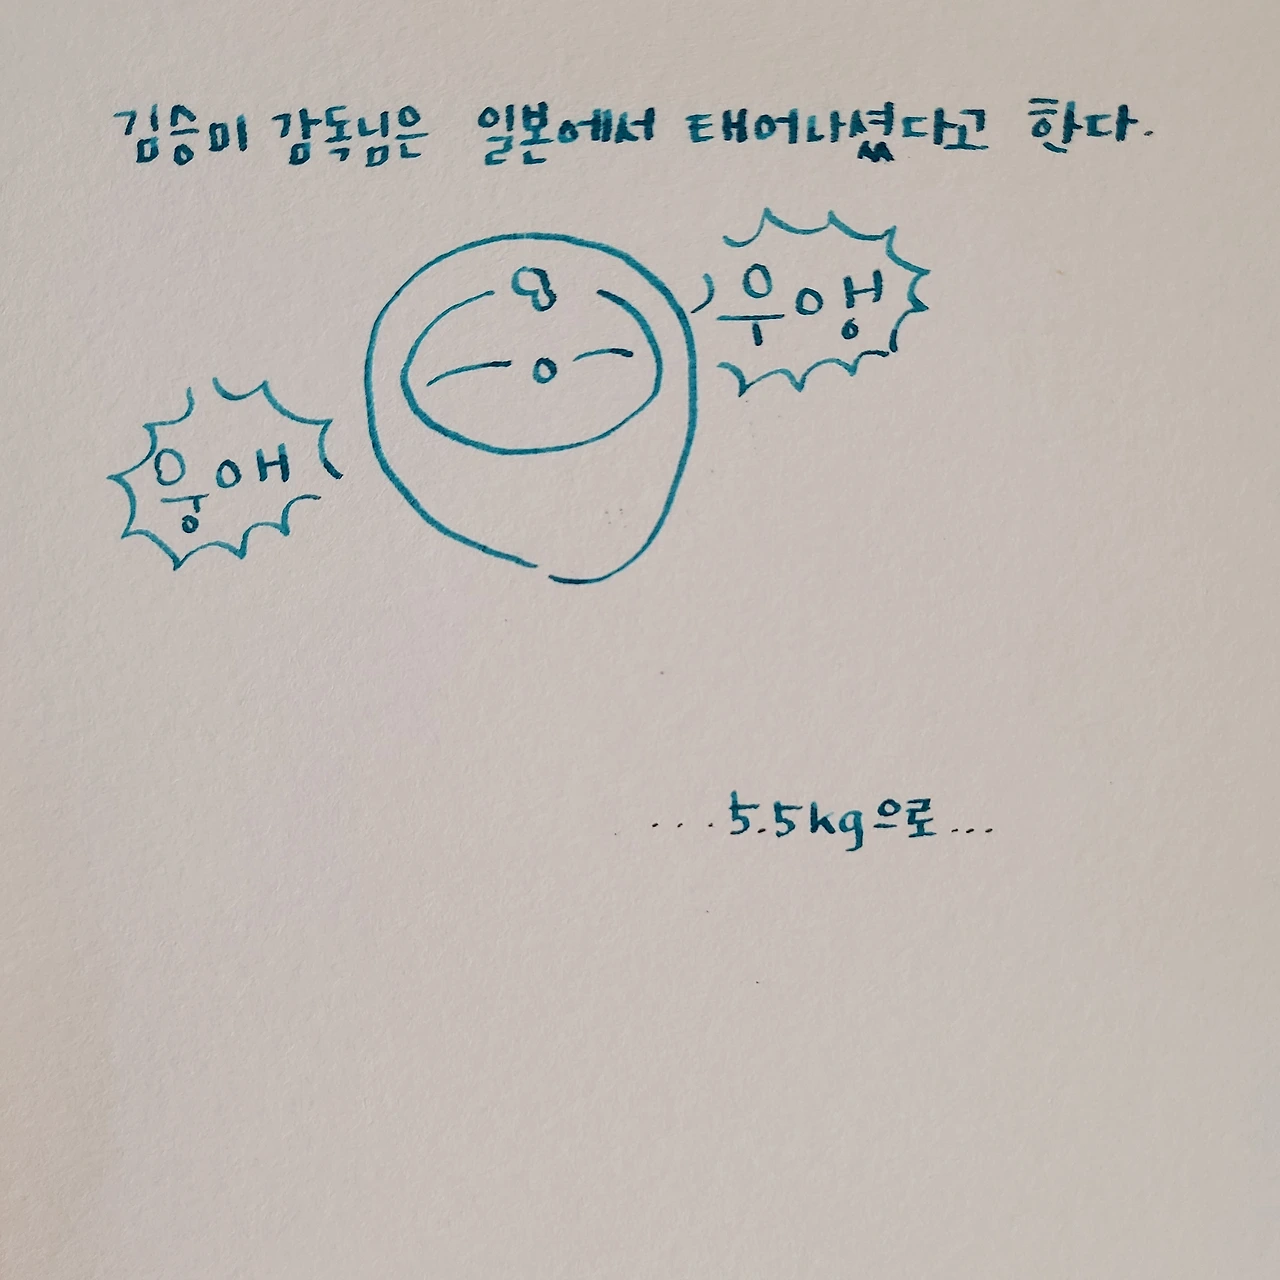 김승미 감독님은 일본에서 태어나셨다고 한다.
우앵
웅애
...5.5kg으로...